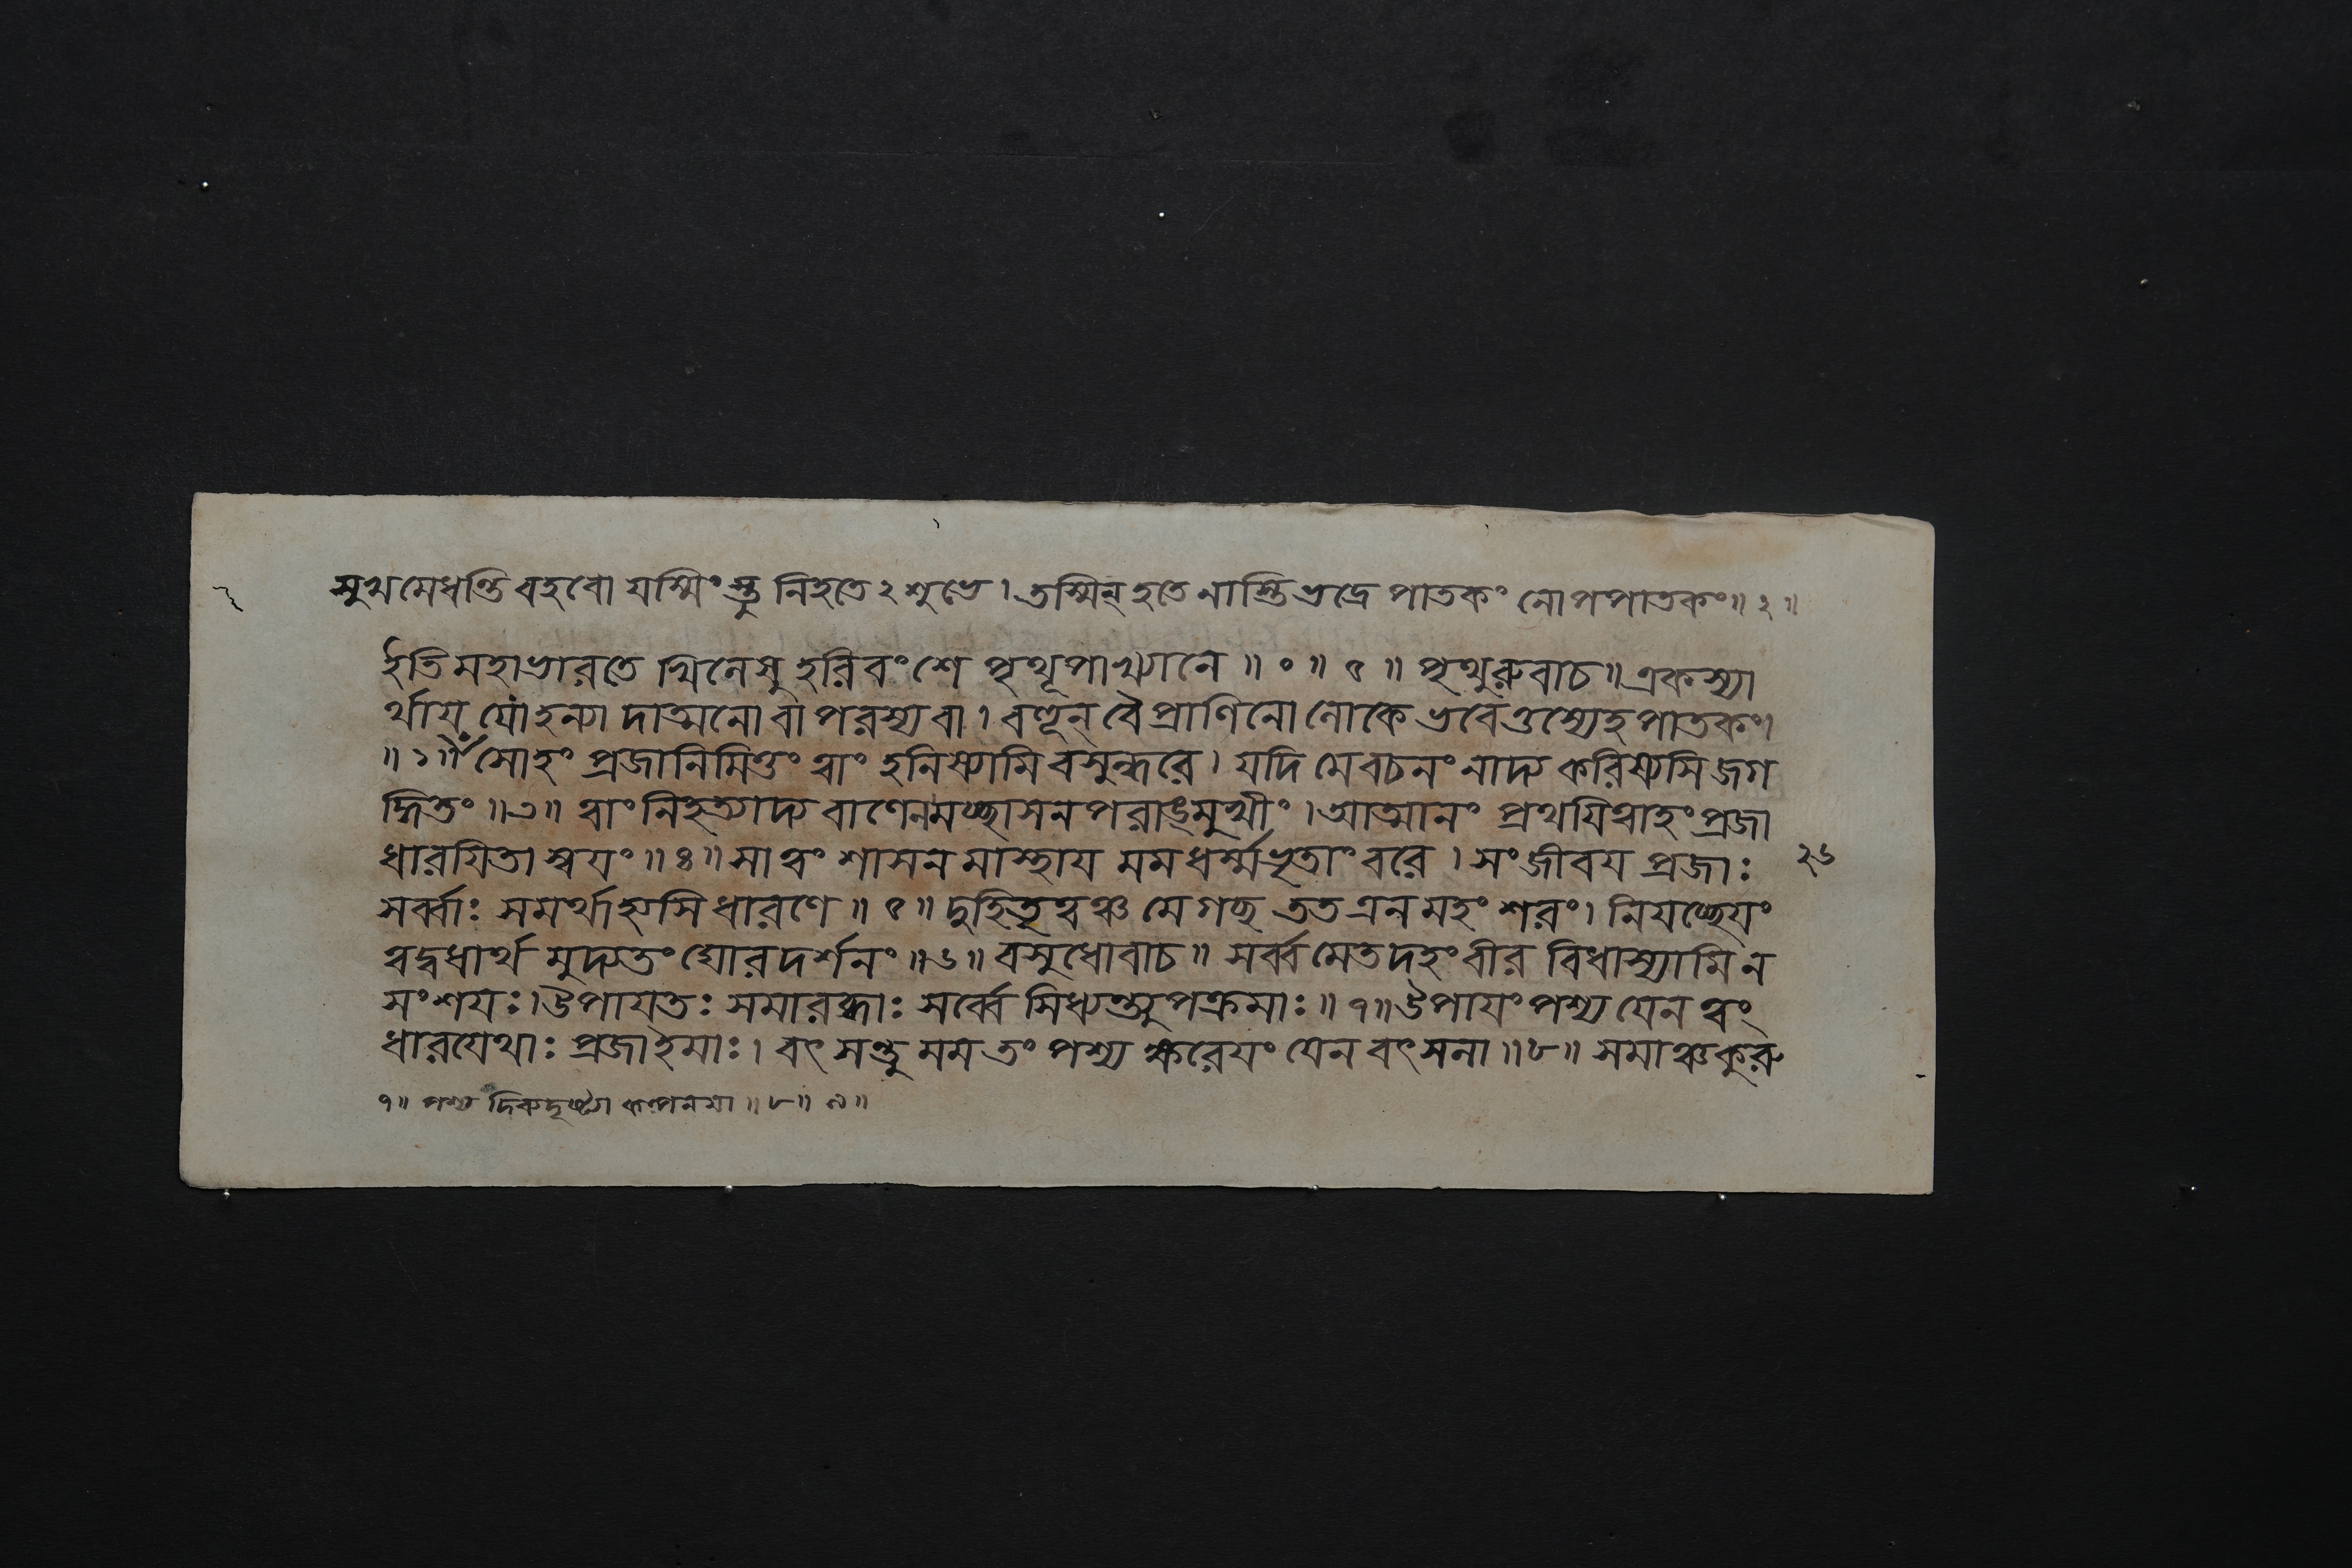 সুখমেধন্তি বহবো যস্মিংস্তু নিহতে ২ শুভে। তস্মিন্ হতে নাস্তি ভদ্রে পাতকং নোপপাতকং॥ ২॥
ইতি মহাভারতে খিলেষু হরিবংশে পৃথূপাখ্যানে॥ ०॥ ৫॥ পৃথুরুবাচ॥ একস্যা
র্থায় যো হন্যাদাত্মনো বা পরস্য বা। বহূন্ বৈ প্রাণিনো লোকে ভবেত্তস্যেহ পাতকং।
॥ ১॥ সোহং প্রজানিমিত্তং ত্বাং হনিষ্যামি বসুন্ধরে। যদি মে বচনং নাদ্য করিষ্যসি জগ
দ্ধিতং॥ ৩॥ ত্বাং নিহত্যাদ্য বাণেন মচ্ছাসনপরাঙ্মুখীং। আত্মানং প্রথয়িত্বাহং প্রজা
ধারয়িতা স্বয়ং॥ ৪॥ সা ত্বং শাসনমাস্থায় মম ধর্ম্মভৃতাং বরে। সংজীবয় প্রজাঃ
২৬
সর্ব্বাঃ সমর্থা হ্যসি ধারণে॥ ৫॥ দুহিতৃত্বঞ্চ মে গচ্ছ তত এনমহং শরং। নিয়চ্ছেয়ং
ত্বদ্বধার্থমুদ্যতং ঘোরদর্শনং॥ ৬॥ বসুধোবাচ॥ সর্ব্বমেতদহং বীর বিধাস্যামি ন
সংশয়ঃ। উপায়তঃ সমারব্ধাঃ সর্ব্বে সিধ্যন্ত্যুপক্রমাঃ॥ ৭॥ উপায়ং পশ্য যেন ত্বং
ধারয়েথাঃ প্রজা ইমাঃ। বৎসন্তু মম তং পশ্য ক্ষরেয়ং যেন বৎসলা॥ ৮॥ সমাঞ্চ কুরু
৭॥ পশ্য ॥ ৮॥ ৯॥